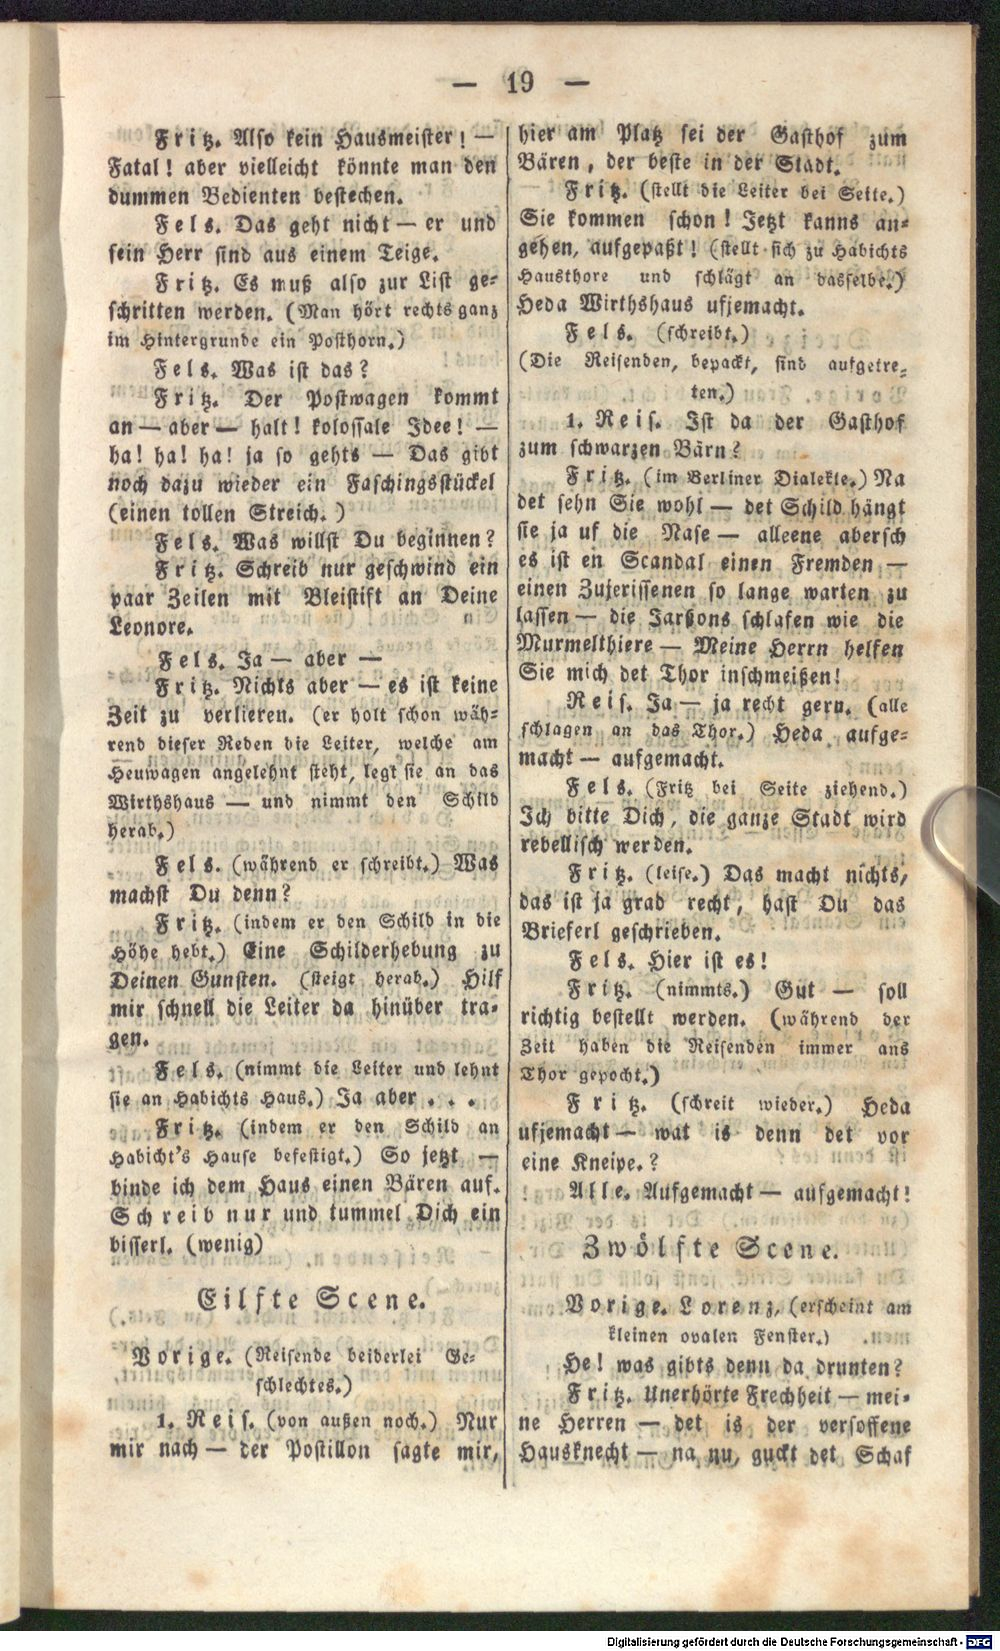 — 19 —
Fritz. Also kein Hausmeister! —
Fatal! aber vielleicht könnte man den
dummen Bedienten bestechen.
Fels. Das geht nicht — er und
sein Herr sind aus einem Teige.
Fritz. Es muß also zur List ge-
schritten werden. (Man hört rechts ganz
im Hintergrunde ein Posthorn.)
Fels. Was ist das?
Fritz. Der Postwagen kommt
an — aber — halt! kolossale Idee! —
ha! ha! ha! ja so gehts — Das gibt
noch dazu wieder ein Faschingsstückel
(einen tollen Streich.)
Fels. Was willst Du beginnen?
Fritz. Schreib nur geschwind ein
paar Zeilen mit Bleistift an Deine
Leonore.
Fels. Ja — aber —
Fritz. Nichts aber — es ist keine
Zeit zu verlieren. (er holt schon wäh-
rend dieser Reden die Leiter, welche am
Heuwagen angelehnt steht, legt sie an das
Wirthshaus — und nimmt den Schild
herab.)
Fels. (während er schreibt.) Was
machst Du denn?
Fritz. (indem er den Schild in die
Höhe hebt.) Eine Schilderhebung zu
Deinen Gunsten. (steigt herab.) Hilf
mir schnell die Leiter da hinüber tra-
gen.
Fels. (nimmt die Leiter und lehnt
sie an Habichts Haus.) Ja aber . . .
Fritz. (indem er den Schild an
Habicht's Hause befestigt.) So jetzt —
binde ich dem Haus einen Bären auf.
Schreib nur und tummel Dich ein
bisserl. (wenig)
Eilfte Scene.
Vorige. (Reisende beiderlei Ge-
schlechtes.)
1. Reis. (von außen noch.) Nur
mir nach — der Postillon sagte mir,
hier am Platz sei der Gasthof zum
Bären, der beste in der Stadt.
Fritz. (stellt die Leiter bei Seite.)
Sie kommen schon! Jetzt kanns an-
gehen, aufgepaßt! (stellt sich zu Habichts
Hausthore und schlägt an dasselbe.)
Heda Wirthshaus ufjemacht.
Fels. (schreibt.)
(Die Reisenden, bepackt, sind aufgetre-
ten.)
1. Reis. Ist da der Gasthof
zum schwarzen Bärn?
Fritz. (im Berliner Dialekte.) Na
det sehn Sie wohl — det Schild hängt
sie ja uf die Nase — alleene abersch
es ist en Scandal einen Fremden —
einen Zujerissenen so lange warten zu
lassen — die Jarßons schlafen wie die
Murmelthiere — Meine Herrn helfen
Sie mich det Thor inschmeißen!
Reis. Ja — ja recht gern. (alle
schlagen an das Thor.) Heda aufge-
macht — aufgemacht.
Fels. (Fritz bei Seite ziehend.)
Ich bitte Dich, die ganze Stadt wird
rebellisch werden.
Fritz. (leise.) Das macht nichts,
das ist ja grad recht, hast Du das
Brieferl geschrieben.
Fels. Hier ist es!
Fritz. (nimmts.) Gut — soll
richtig bestellt werden. (während der
Zeit haben die Reisenden immer ans
Thor gepocht.)
Fritz. (schreit wieder.) Heda
ufjemacht — wat is denn det vor
eine Kneipe.?
Alle. Aufgemacht — aufgemacht!
Zwölfte Scene.
Vorige. Lorenz, (erscheint am
kleinen ovalen Fenster.)
He! was gibts denn da drunten?
Fritz. Unerhörte Frechheit — mei-
ne Herren — det is der versoffene
Hausknecht — na nu, guckt det Schaf
Digitalisierung gefördert durch die Deutsche Forschungsgemeinschaft - DFG